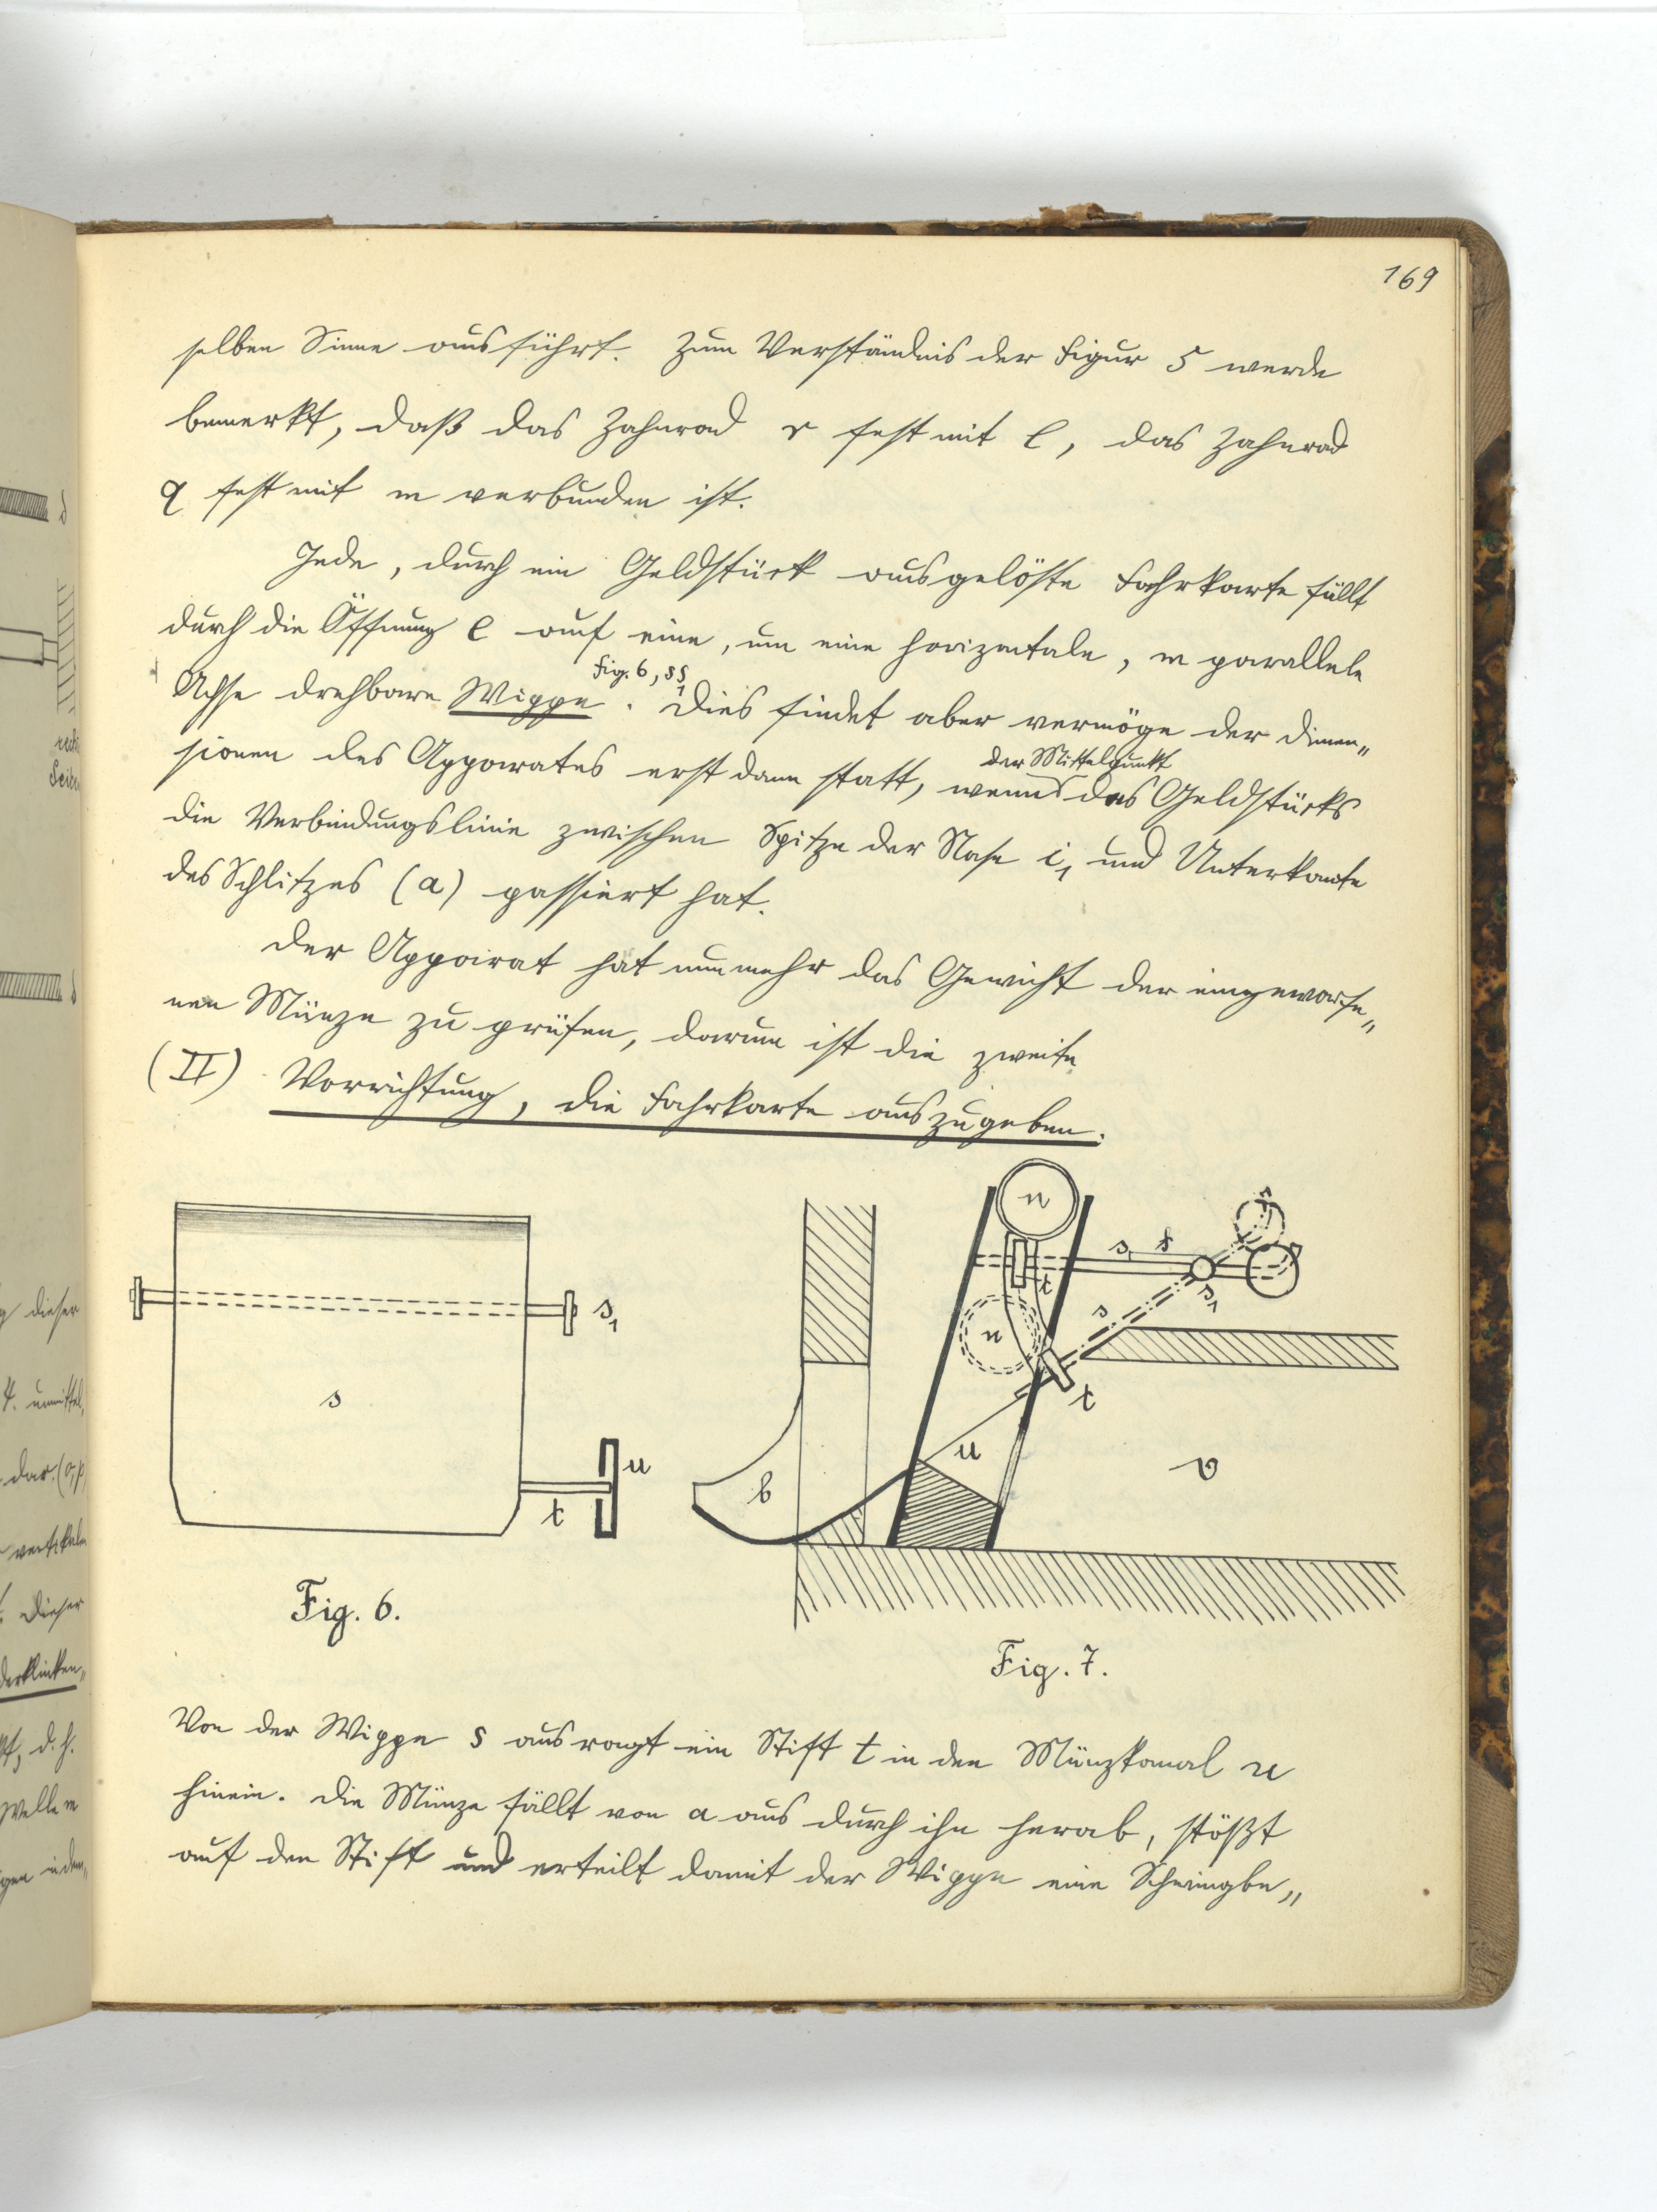 169
selben Sinne ausführt. Zum Verständnis der Figur 5 werde
bemerkt, daß das Zahnrad r fest mit l, das Zahnrad
q fest mit m verbunden ist.
Jede, durch ein Geldstück ausgelöste Fahrkarte fällt
durch die Öffnung e auf eine, um eine horizontale, m parallele
Fig. 6, s s1
Achse drehbare Wippe. Dies findet aber vermöge der Dimen„
der Mittelpunkt
sionen des Apparates erst dann statt, wenn des Geldstücks
die Verbindungslinie zwischen Spitze der Nase i1 und Unterkante
des Schlitzes (a) passiert hat.
Der Apparat hat nunmehr das Gewicht der eingeworfe„
nen Münze zu prüfen, darum ist die zweite
(II) Vorrichtung, die Fahrkarte auszugeben.
s1
s
t
u
Fig. 6.
n
s
t
s1
s
n
t
u
b
v
Fig. 7.
Von der Wippe s aus ragt ein Stift t in den Münzkanal u
hinein. Die Münze fällt von a aus durch ihn herab, stößt
auf den Stift und erteilt damit der Wippe eine Schwingbe„
rech
Seiten
dieser
4. unmittel„
dar. (o, p)
vertikalen
Dieser
derklinken„
d. h.
Welle m
indem„